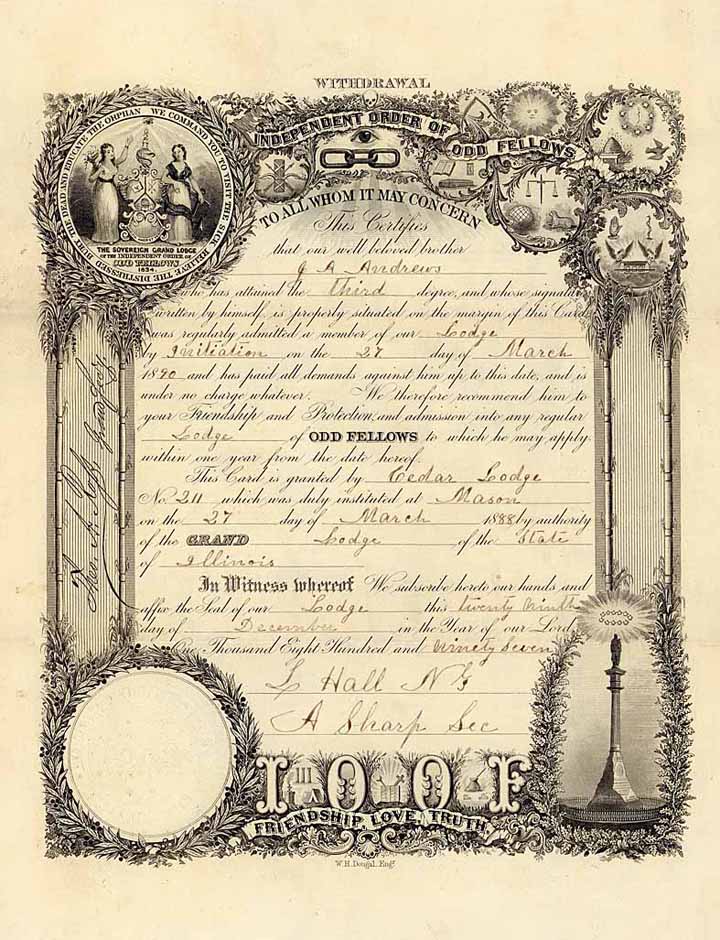 WITHDRAWAL
INDEPENDENT ORDER OF ODD FELLOWS
BURY THE DEAD AND EDUCATE THE ORPHAN WE COMMAND YOU TO VISIT THE SICK RELIEVE THE DISTRESSED
THE SOVEREIGN GRAND LODGE
OF THE INDEPENDENT ORDER OF
ODD FELLOWS.
1834.
TO ALL WHOM IT MAY CONCERN
This Certifies
that our well beloved brother
J A Andrews
who has attained the third degree, and whose signature
written by himself, is properly situated on the margin of this Card
was regularly admitted a member of our Lodge
by Initiation on the 27 day of March
1890 and has paid all demands against him up to this date, and is
under no charge whatever. We therefore recommend him to
your Friendship and Protection, and admission into any regular
Lodge of ODD FELLOWS to which he may apply
within one year from the date hereof.
This Card is granted by Cedar Lodge
No. 211 which was duly instituted at Mason
on the 27 day of March 1888 by authority
of the GRAND Lodge of the State
of Illinois
In Witness whereof We subscribe hereto our hands and
affix the Seal of our Lodge this twenty Ninth
day of December in the Year of our Lord
One Thousand Eight Hundred and Ninety Seven
L Hall NG
A Sharp Sec
I O O F
FRIENDSHIP, LOVE, TRUTH.
W.H. Dougal, Engr.